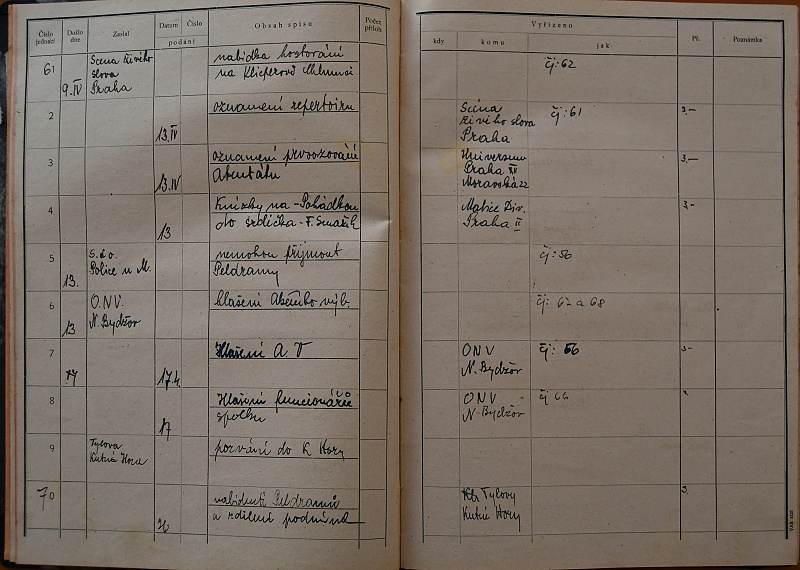 Číslo jednací
Došlo dne
Zaslal
Datum
Číslo
podání
Obsah spisu
Počet příloh
Vyřízeno
kdy
komu
jak
Př.
Poznámka
61
9.IV
Scena živého
slova
Praha
nabídka hostování
na Klicperově
čj: 62
2
13.IV
oznamení repertoiru
Scéna
živého slova
Praha
čj: 61
3.-
3
13.IV
oznamení provozování
Atentátu
Universum
Praha XII
Moravská 22
3.-
4
13
Knížky na - Pohádkou
do srdíčka - F. Smažík
Matice Div.
Praha II
3.-
5
13.
Police n M.
nemohou přijmout
Peldramy
čj: 56
6
13
O.N.V.
N. Bydžov
hlašení Akčního výb.
čj: 67 a 68
7
17.4.
Hlašení A. V
ONV
N. Bydžov
čj: 66
3-
8
17
Hlašení funcionářů
spolku
ONV
N. Bydžov
čj 66
9
Tylova
Kutná Hora
pozvání do K Hory
70
Peldramů
a sdělení podmínek
Tylovy
Kutné Hory
3.